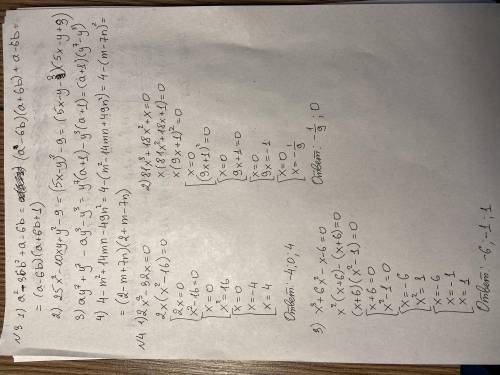 N3 1) a²-36b²+a-6b = (a-6b)(a+6b)+a-6b=
=(a-6b)(a+6b+1)
2) 25x²-10xy+y²-9=(5x-y)²-9=(5x-y-3)(5x-y+3)
3) ay⁷+y⁷-ay³-y³=y⁷(a+1)-y³(a+1)=(a+1)(y⁷-y³)
4) 4-m²+14mn-49n²=4-(m²-14mn+49n²)=4-(m-7n)²=
=(2-m+7n)(2+m-7n)
N4 1) 2x³-32x=0
2x(x²-16)=0
2x=0
x²-16=0
x=0
x²=16
x=0
x=-4
x=4
Ответ: -4,0,4
2) 81x³+18x²+x=0
x(81x²+18x+1)=0
x(9x+1)²=0
x=0
(9x+1)²=0
x=0
9x+1=0
x=0
9x=-1
x=0
x=-1/9
Ответ: -1/9; 0
3) x³+6x²-x-6=0
x²(x+6)-(x+6)=0
(x+6)(x²-1)=0
x+6=0
x²-1=0
x=-6
x²=1
x=-6
x=-1
x=1
Ответ: -6, -1; 1